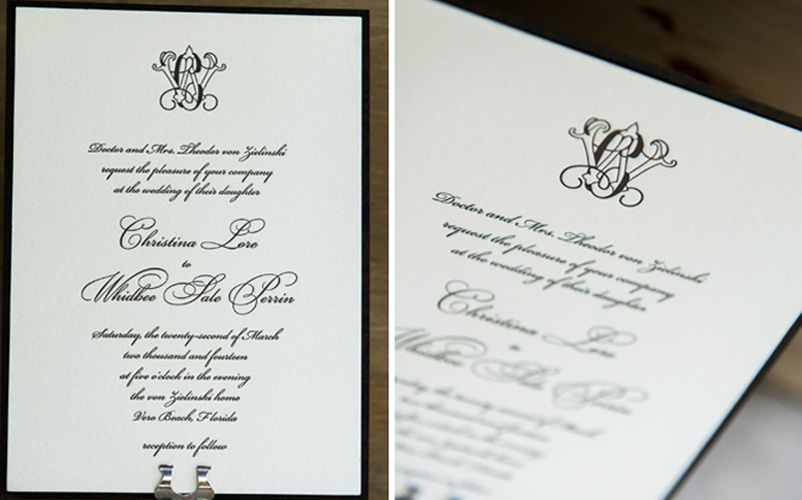 Doctor and Mrs. Theodor von Zielinski
request the pleasure of your company
at the wedding of their daughter
Christina Lore
to
Whidbee Sale Perrin
Saturday, the twenty-second of March
two thousand and fourteen
at five o'clock in the evening
the von Zielinski home
Vero Beach, Florida
reception to follow
Doctor and Mrs. Theodor von Zielinski
request the pleasure of your company
at the wedding of their daughter
Christina Lore
to
Whidbee Sale Perrin